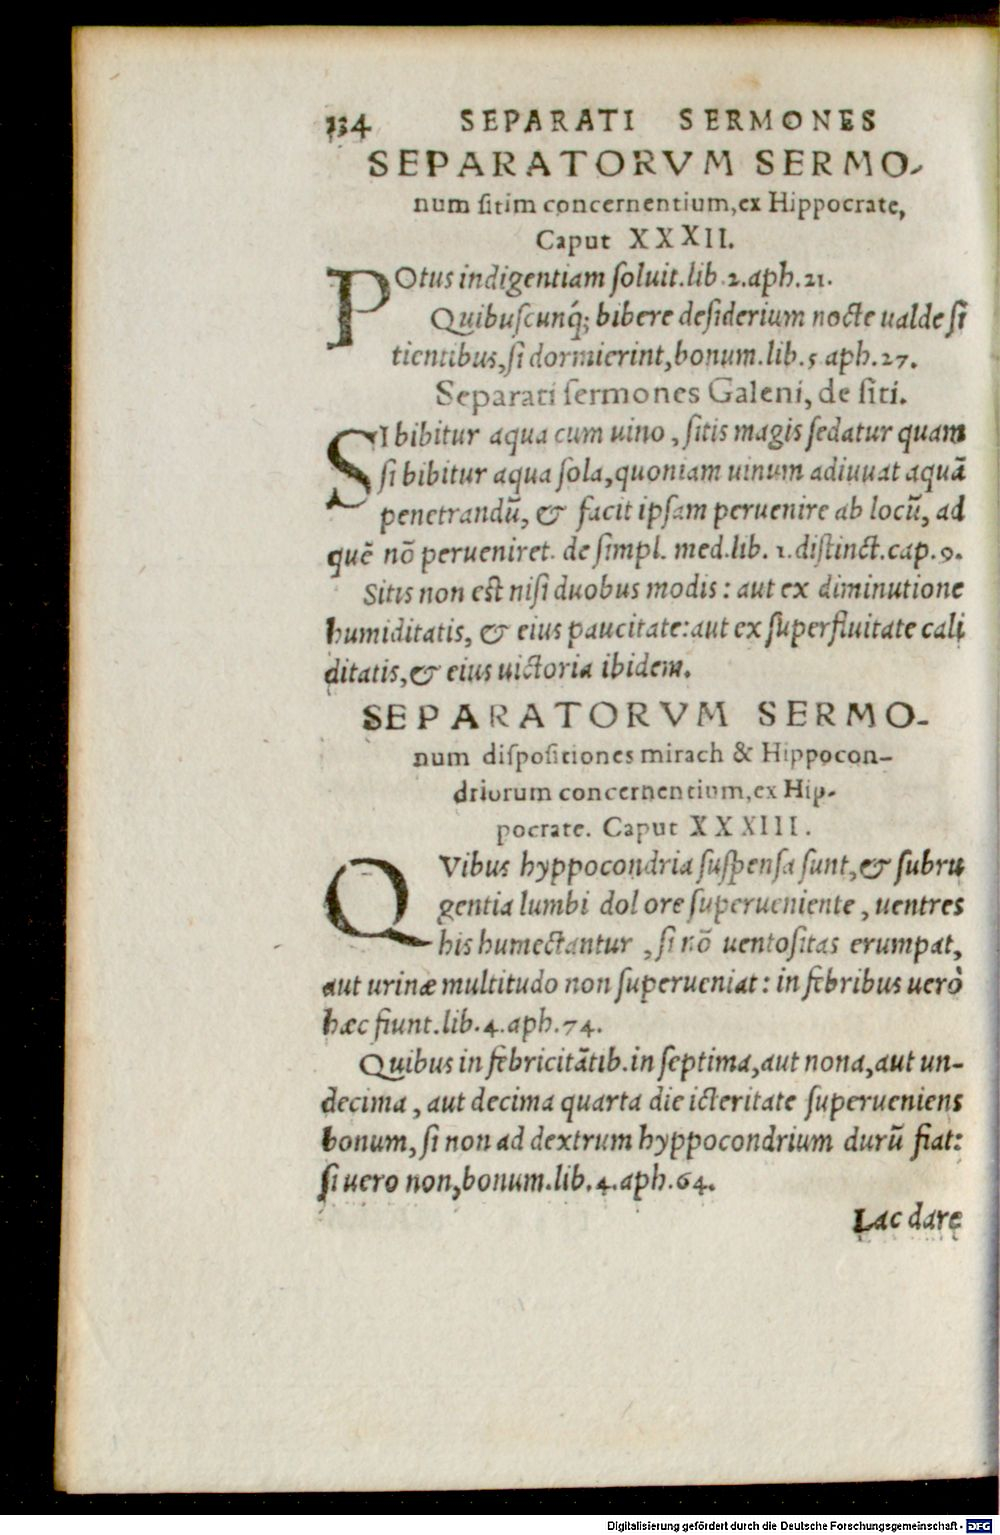 134 SEPARATI SERMONES
SEPARATORVM SERMO-
num ſitim concernentium,ex Hippocrate,
Caput XXXII.
POtus indigentiam ſoluit.lib.2.aph.21.
Quibuſcunq́; bibere deſiderium nocte ualde ſi
tientibus,ſi dormierint,bonum.lib.5 aph.27.
Separati ſermones Galeni, de ſiti.
SI bibitur aqua cum uino, ſitis magis ſedatur quam
ſi bibitur aqua ſola,quoniam uinum adiuuat aquã
penetrandũ, & facit ipſam peruenire ab locũ, ad
quẽ nõ perueniret. de ſimpl. med.lib. 1.diſtinct.cap.9.
Sitis non eſt niſi duobus modis: aut ex diminutione
humiditatis, & eius paucitate:aut ex ſuperfluitate cali
ditatis,& eius uictoria ibidem.
SEPARATORVM SERMO-
num diſpoſitiones mirach & Hippocon-
driorum concernentium,ex Hip-
pocrate. Caput XXXIII.
QVibus hyppocondria ſuſpenſa ſunt,& ſubru
gentia lumbi dolore ſuperueniente, uentres
his humectantur, ſi nõ uentoſitas erumpat,
aut urinæ multitudo non ſuperueniat: in febribus uerò
hæc fiunt.lib.4.aph.74.
Quibus in febricitãtib.in ſeptima,aut nona,aut un-
decima, aut decima quarta die icteritate ſuperueniens
bonum, ſi non ad dextrum hyppocondrium durũ fiat:
ſi uero non,bonum.lib.4.aph.64.
Lac dare
Digitalisierung gefördert durch die Deutsche Forschungsgemeinschaft - DFG